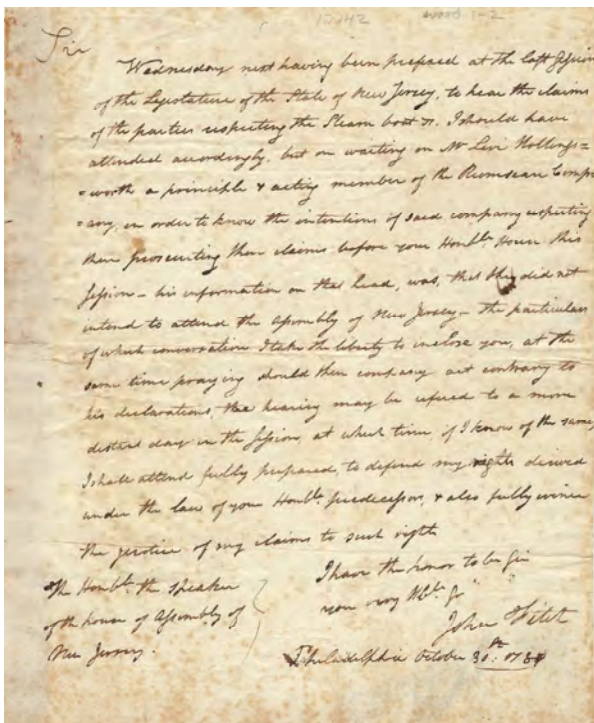 Sir
Wednesday next having been prepaed at the last Session
of the Legislature of the State of New Jersey, to hear the claims
of the parties respecting the Steam boat &. I should have
attended accordingly, but on waiting on Mr Levi Hollings=
=worth a principle & acting member of the Rumseian Comp=
=any, in order to know the intentions of said company respecting
their prosecuting their claims before your Honble House this
Session – his information on that head, was, that they did not
intend to attend the Assembly of New Jersey – the particulars
of which conversation I take the liberty to inclose you, at the
same time praying should their company act contrary to
his declarations, the hearing may be refered to a more
distant day in the Session, at which time if I know of the same,
I shall attend fully prepared, to defend my rights derived
under the law of your Honble predecessors, & also fully evince
the justice of my claims to such right
I have the honor to be Sir
your very Hble Sr
John Fitch
The Honble the Speaker
of the house of Assembly of
New Jersey.
Philadelphia October 30th